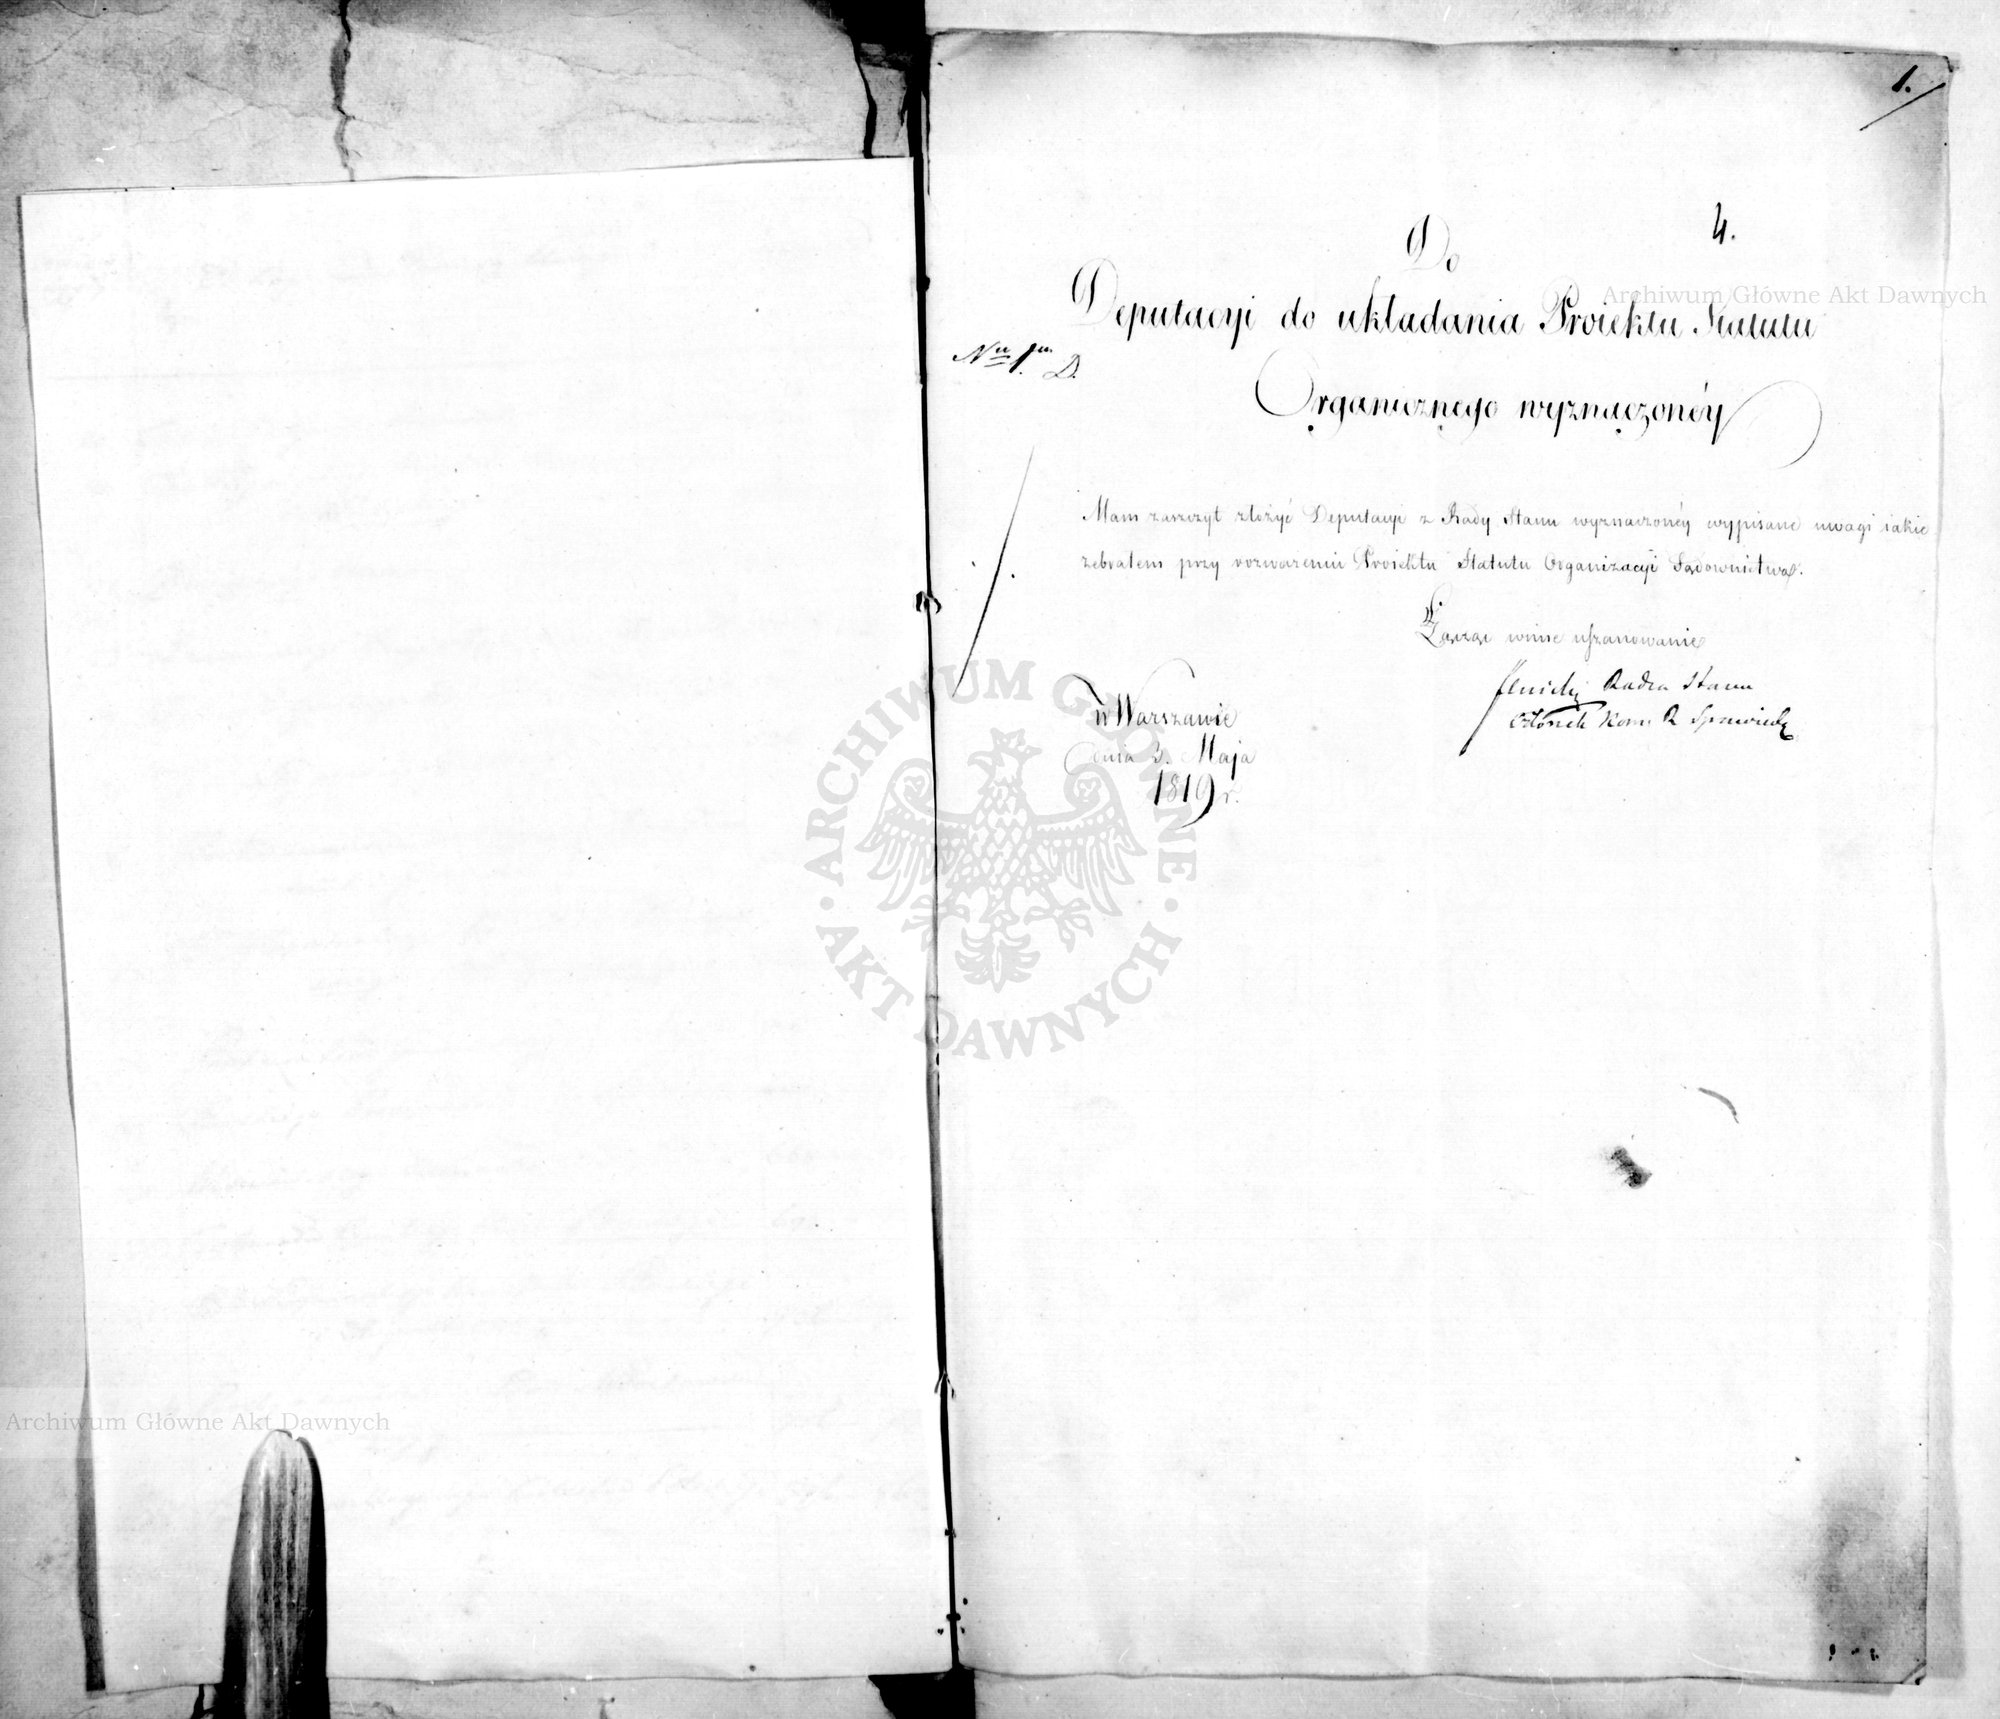 1.
4.
Do
Deputacyi do układania Proiektu Statutu
Nro 1m D.
Organicznego wyznaczonéy
Mam zaszczyt złożyć Deputacyi z Rady Stanu wyznaczonéy wypisane uwagi iakie
zebrałem przy rozważeniu Proiektu Statutu Organizacyi Sądownictwa.
Łącząc winne uszanowanie
Radca Stanu
Członek Kom. R. Sprawiedl
w Warszawie
dnia 3. Maja
1819 r.
Archiwum Główne Akt Dawnych
ARCHIWUM GŁÓWNE
AKT DAWNYCH
Archiwum Główne Akt Dawnych